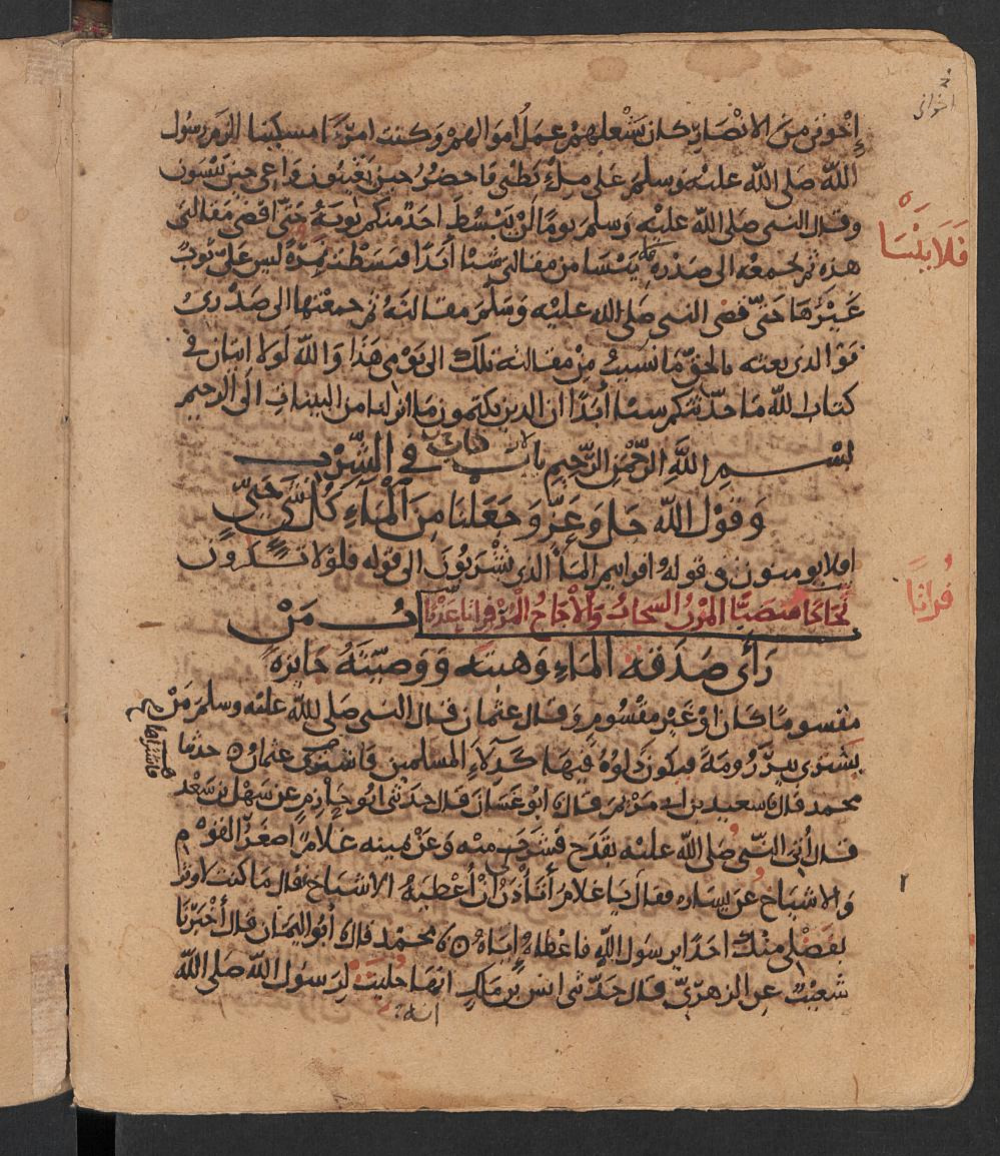 إخوتي من الانصار كان يشغلهم عمل أموالهم وكنت امرءًا مسكينا الزم رسول
الله صلى الله عليه وسلم على ملء بطني فاحضر حين يغيبون واعي حين ينسون
وقال النبي صلى الله عليه وسلم يومًا لن يبسط احد منكم ثوبه حتى اقضي مقالتي
هذه ثم يجمعه الى صدره ينسا من مقالتي شيئا ابدًا فبسطت نمرة ليس علي ثوب
غيرها حتى قضى النبي صلى الله عليه وسلم مقالته ثم جمعتها الى صدري
فوالذي بعثه بالحق ما نسيت من مقالته تلك الى يومي هذا والله لولا ايتان في
كتاب الله ما حدثتكم شيئا أبدًا ان الذين يكتمون ما انزلنا من البينات الى الرحيم
بسم الله الرحمن الرحيم باب في الشرب
وقول الله جل وعز وجعلنا من الماء كل شيء حي
افلا يومنون وقوله افرايتم الماء الذي تشربون الى قوله فلولا تشكرون
ثجاجا منصبًّا المزن السحاب والاجاج المر فراتا عذبا باب من
رأى صدقة الماء وهبته ووصيته جائزة
مقسوما كان او غير مقسوم وقال عثمان قال النبي صلى الله عليه وسلم من
يشتري بير رومة فيكون دلوه فيها كدلاء المسلمين فاشترى عثمان حدثنا
محمد قال سعيد بن ابي مريم قال ابو غسان قال حدثني ابو حازم عن سهل بن سعد
قال أتي النبي صلى الله عليه بقدح فشرب منه وعن يمينه غلام اصغر القوم
والاشياخ عن يساره فقال يا غلام أتأذن أن أعطيه الاشياخ قال ما كنت لاوثر
بفضلي منك احدًا يرسول الله فاعطاه إياه محمد قال أبو اليمان قال أخبرنا
شعيب عن الزهري قال حدثني انس بن مالك انها حلبت لرسول الله صلى الله
اخواني
فلا ينسا
فراتا
فاشتراها